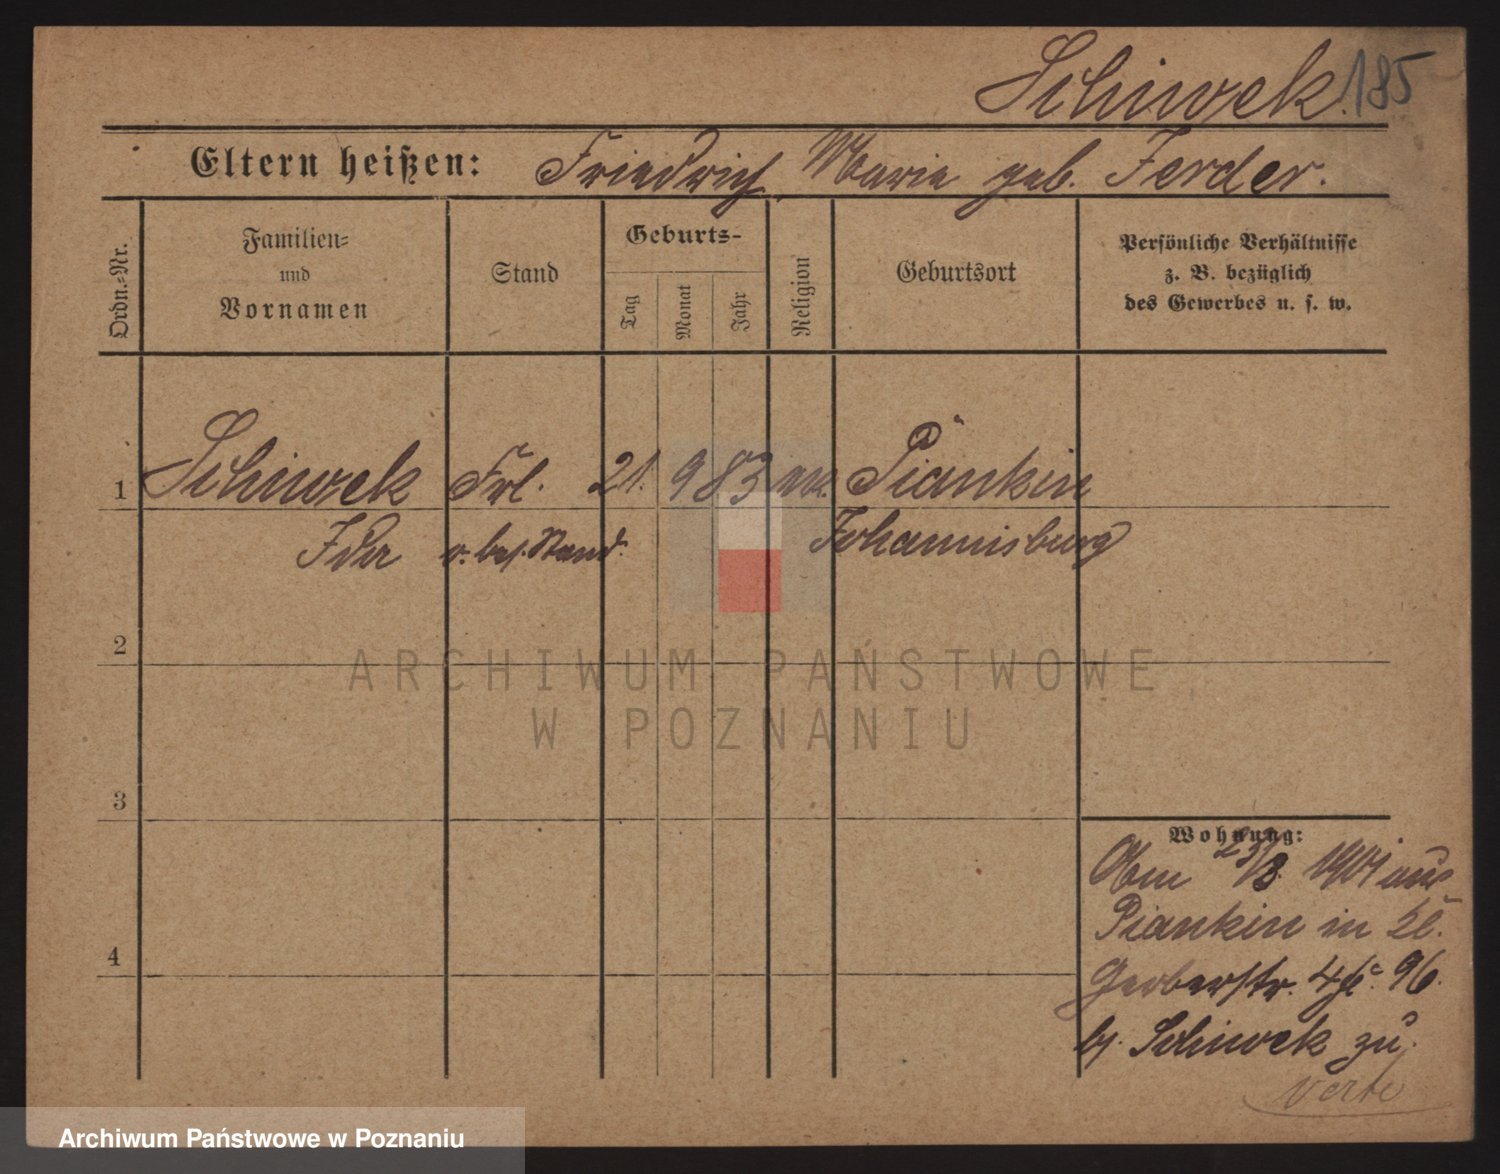 Schiwek. 185
Eltern heißen: Friedrich, Marie geb. Ferder.
Ordn.=Nr.
Familien=
und
Vornamen
Stand
Geburts-
Tag
Monat
Jahr
Religion
Geburtsort
Persönliche Verhältnisse
z. B. bezüglich
des Gewerbes u. s. w.
1 Schiwek Frl. 21. 9 83 Piankin
Ida o. bes. Stand. Johannisburg
2
ARCHIWUM PAŃSTWOWE
W POZNANIU
3
Wohnung:
1901 aus
Piankin in
Gerberstr. 96.
bj. Schiwek zu.
4
verte
Archiwum Państwowe w Poznaniu